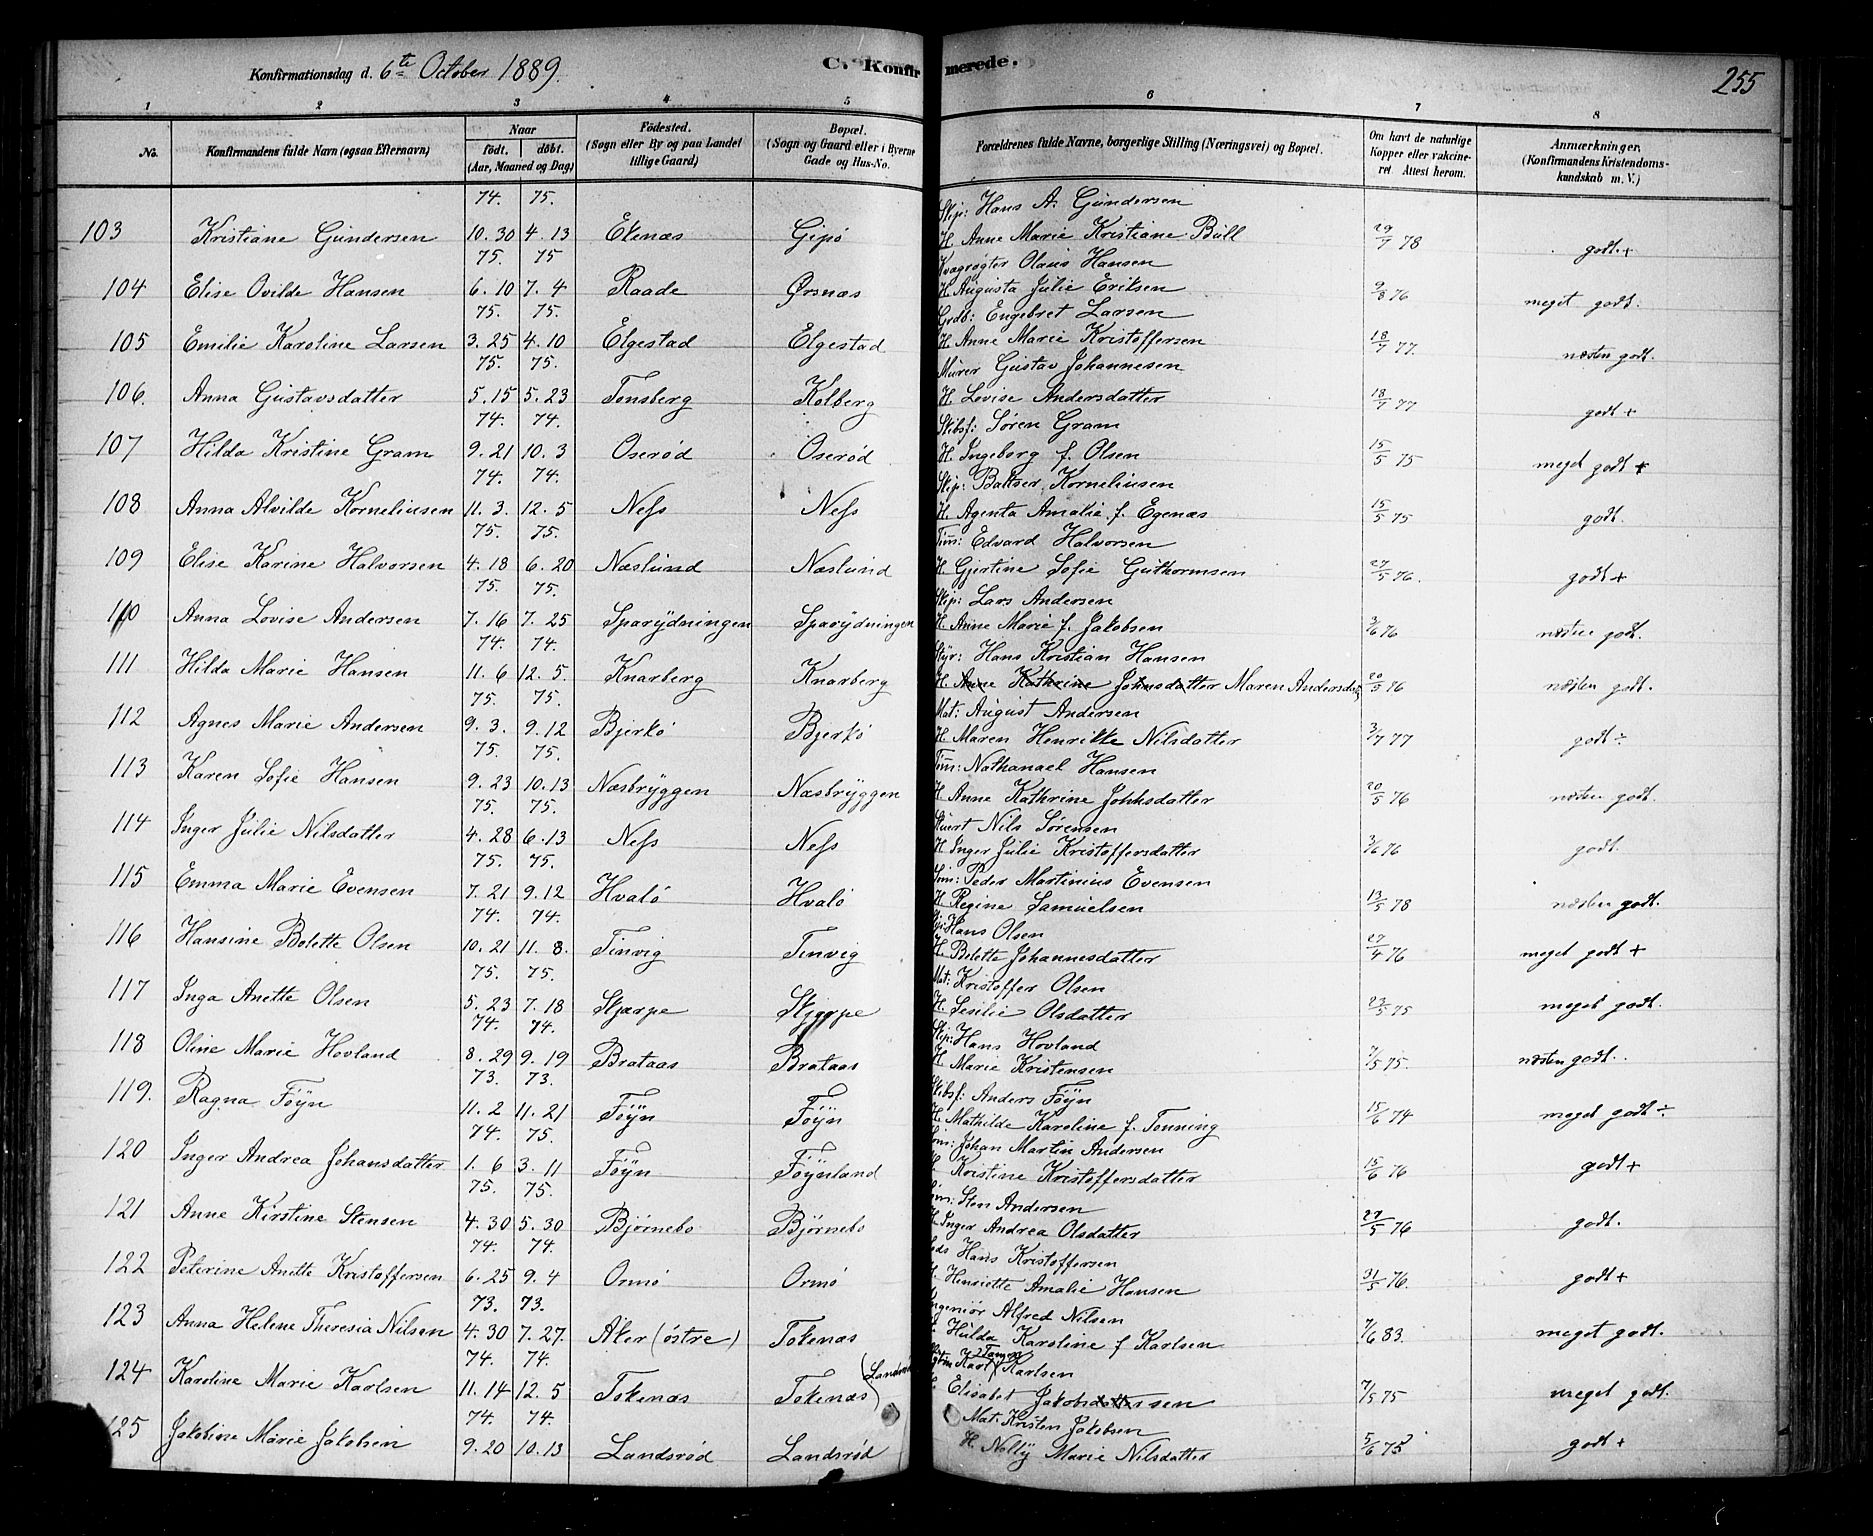 Konfirmationsdag d. 6te October 1889.
C. Konfirmerede.
255
1 2 3 4 5 6 7 8
No. Konfirmandens fulde Navn (ogsaa Efternavn) Naar født. døbt. (Aar, Maaned og Dag) Fødested. (Sogn eller By og paa Landet tillige Gaard) Bopæl. (Sogn og Gaard eller i Byerne Gade og Hus-No. Forældrenes fulde Navne, borgerlige Stilling (Næringsvei) og Bopæl. Om havt de naturlige Kopper eller vakcineret. Attest herom. Anmærkninger. (Konfirmandens Kristendomskundskab m. V.)
74. 75. Skip: Hans A. Gundersen
103 Kristiane Gundersen 10. 30 4. 13 Ekenæs Gipö H. Anne Marie Kristiane Bull 29/7 78 godt +
75. 75 Kvægrøgter Olaus Hansen
104 Elise Ovilde Hansen 6. 10 7. 4 Raade Ørsnæs H. Augusta Julie Eriksen 9/8 76 meget godt.
75. 75. Grdb: Engebret Larsen
105 Emilie Karoline Larsen 3. 25 4. 10 Elgestad Elgestad H. Anne Marie Kristoffersen 18/7 77. næsten godt.
75. 75. Murer Gustav Johannesen
106. Anna Gustavsdatter 5. 15 5. 23 Tønsberg Kolberg H. Lovise Andersdatter 18/7 77 godt +
74. 74. Skibsf: Søren Gram
107 Hilda Kristine Gram 9. 21 10. 3 Oserød Oserød H. Ingeborg f. Olsen 15/5 75 meget godt +
74. 74. Skip: Baltser Kornelinsen
108 Anna Alvilde Kornelinsen 11. 3. 12. 5 Nefs Nefs H. Agenta Amalie f. Egenæs 15/5 75 godt.
75. 75. Töm: Edvard Halvorsen
109 Elise Karine Halvorsen 4. 18 6. 20 Næslund Næslund H. Gjertine Sofie Guthormsen 27/5 76. godt +
75. 75. Skip: Lars Andersen
110 Anna Lovise Andersen 7. 16 7. 25 Sparydningen Sparydningen H. Anne Marie f. Jakobsen 3/6 76 næsten godt.
74. 74. Styr: Hans Kristian Hansen
111 Hilda Marie Hansen 11. 6 12. 5. Knarberg Knarberg H. Anne Kathrine Johnsdatter Maren Andersdtr 20/5 76 næsten godt.
75. 75. Mat: August Andersen
112 Agnes Marie Andersen 9. 3. 9. 12 Bjerkö Bjerkö H. Maren Henrikke Nilsdatter 3/7 77 godt ÷
75. 75. Töm: Nathanael Hansen
113 Karen Sofie Hansen 9. 23 10. 13 Næsbryggen Næsbryggen H. Anne Kathrine Johnsdatter 20/5 76 næsten godt.
75. 75. Stuert Nils Sørensen
114 Inger Julie Nilsdatter 4. 28 6. 13 Nefs Nefs H. Inger Julie Kristoffersdatter 3/6 76 godt.
75. 75. Töm: Peder Martinius Evensen
115 Emma Marie Evensen 7. 21 9. 12 Hvalö Hvalö H. Regine Samuelsen 13/5 78 næsten godt.
74. 74. Hans Olsen
116 Hansine Bolette Olsen 10. 21 11. 8. Tinvig Tinvig H. Bolette Johannesdatter 27/4 76 meget godt +
75. 75. Mat: Kristoffer Olsen
117 Inga Anette Olsen 5. 23 7. 18 Skjærpe Skjærpe H. Sesilie Olsdatter 23/5 75 meget godt.
74. 74. Skip: Hans Hovland
118 Oline Marie Hovland 8. 29 9. 19 Brataas Brataas H. Marie Kristensen 7/5 75. næsten godt.
73. 73. Skibsf: Anders Föyn
119. Ragna Föyn 11. 2 11. 21 Föyn Föyn H. Mathilde Karoline f. Tonning 15/6 74 meget godt ÷
74. 75. Töm: Johan Martin Andersen
120 Inger Andrea Johansdatter 1. 6 3. 11 Föyn Föynland Kristine Kristoffersdatter 15/6 76 godt +
75. 75. Töm: Sten Andersen
121 Anne Kirstine Stensen 4. 30 5. 30 Bjørnebo Bjørnebo H. Inger Andrea Olsdatter 27/5 76 godt.
74. 74. Hans Kristoffersen
122 Peterine Anette Kristoffersen 6. 25 9. 4 Ormö Ormö Henriette Amalie Hansen 31/5 76. godt +
73. 73. Ingeniör Alfred Nilsen
123 Anna Helene Theresia Nilsen 4. 30 7. 27. Aker (östre) Tokenæs Hulda Karoline f Karlsen 7/6 83. meget godt.
74. 74. Karl Karlsen
124 Karoline Marie Karlsen 11. 14 12. 5 Tokenæs Tokenæs Elisabet Jakobsdattersen 7/5 75 meget godt.
74. 74. Mat: Kristen Jakobsen
125 Jakobine Marie Jakobsen 9. 20 10. 13 Landsrød Landsrød H. Nelly Marie Nilsdatter 5/6 75 godt +